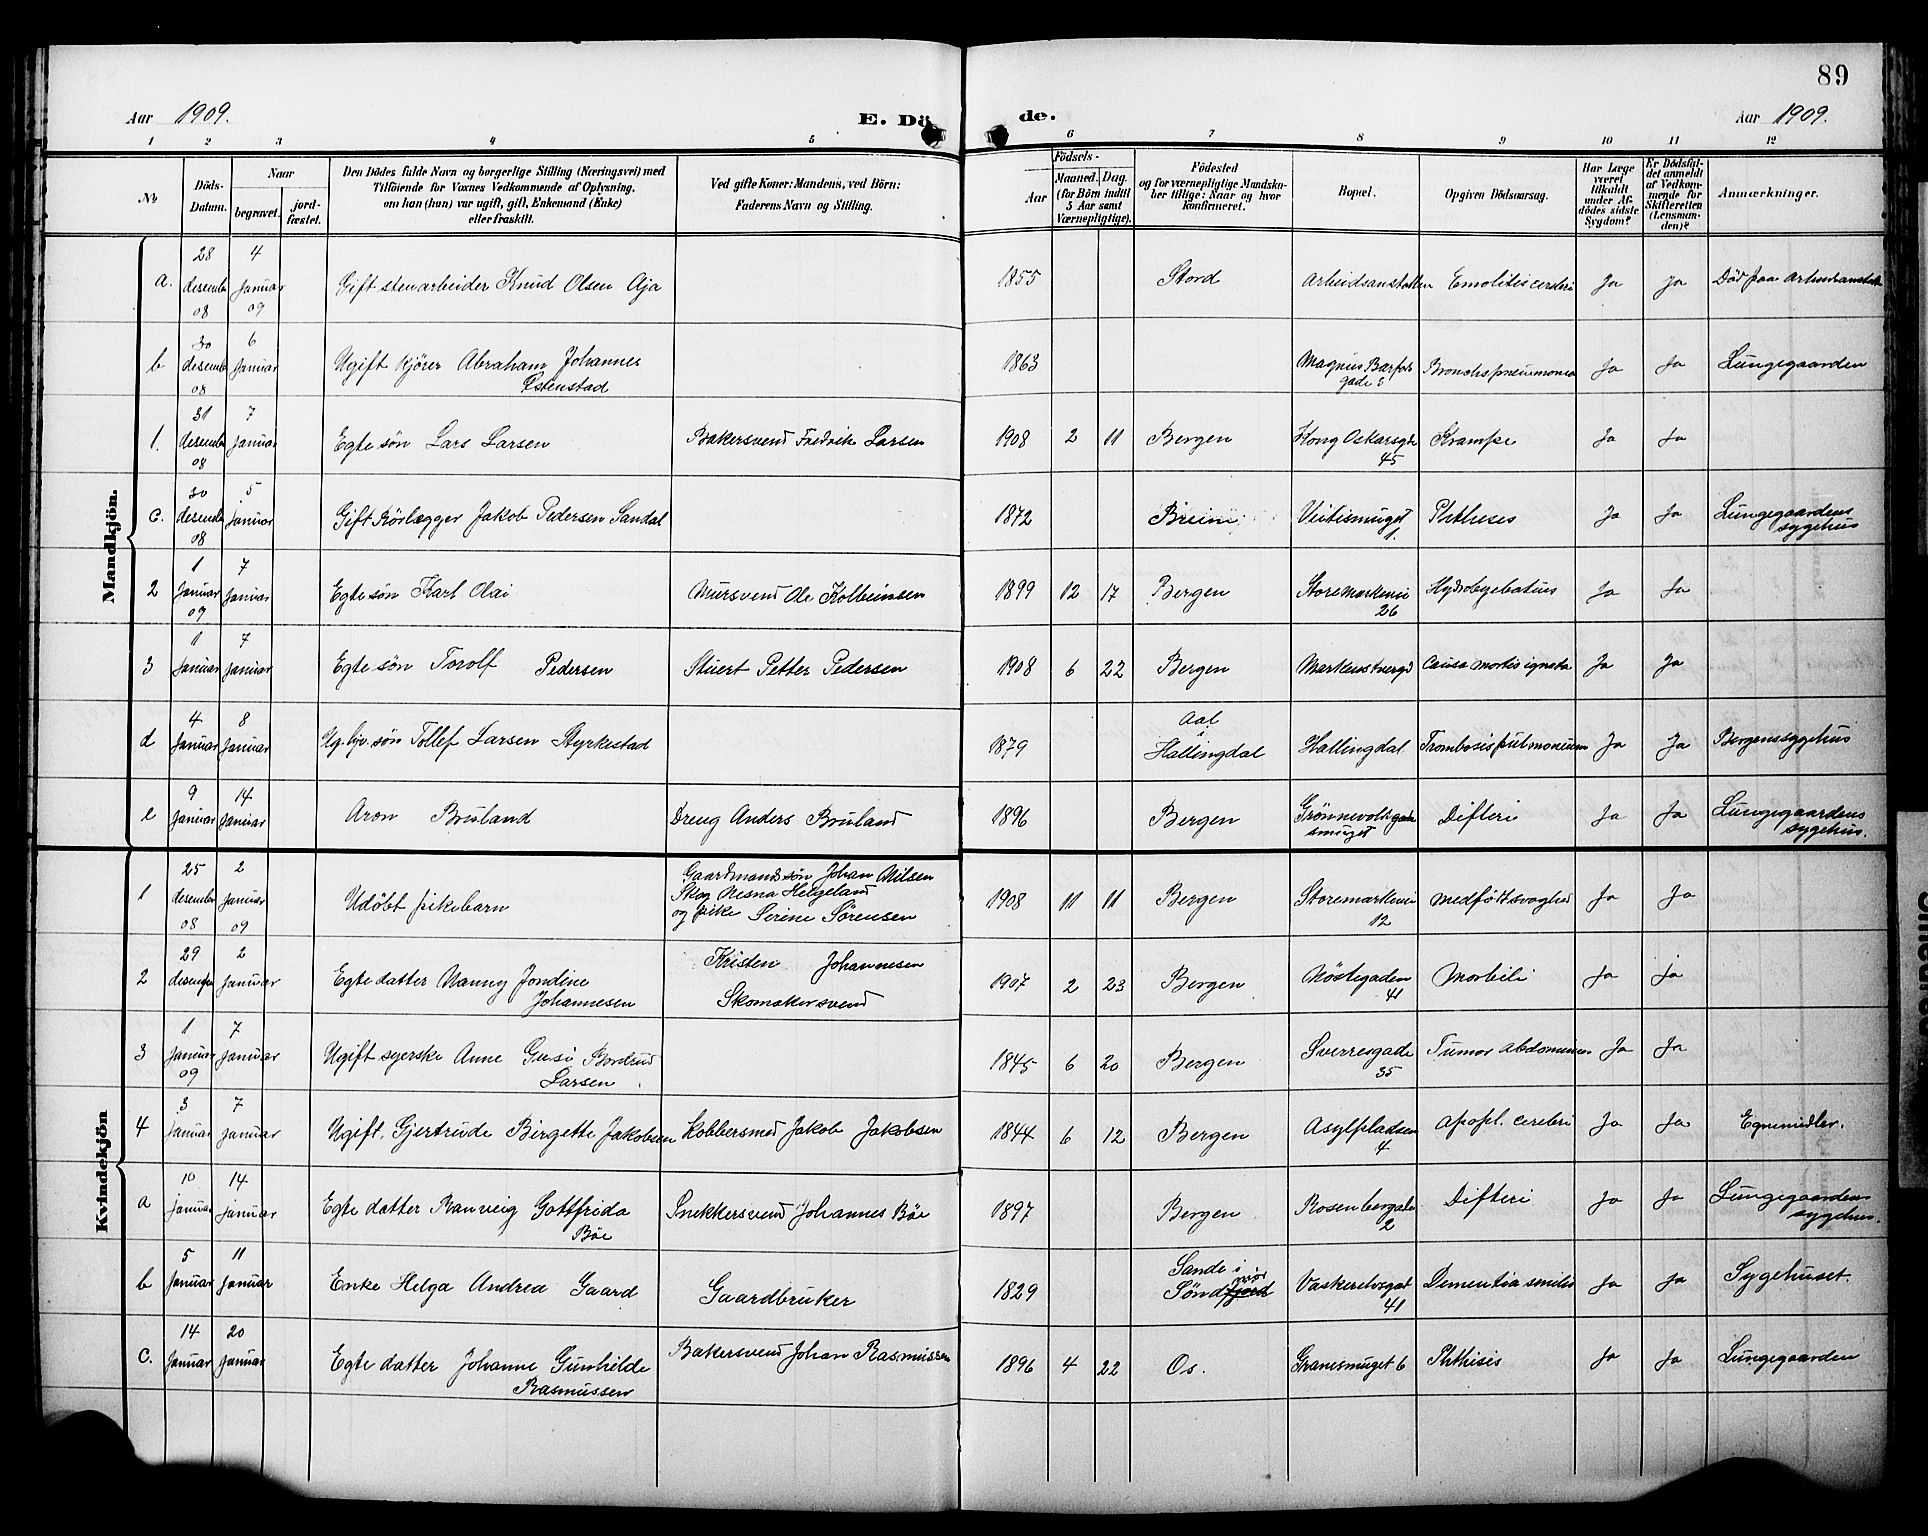 89
Aar 1909. E. Dö de. Aar 1909.
1 2 3 4 5 6 7 8 9 10 11 12
№ Döds-Datum. Naar begravet. jord-fæstet. Den Dödes fulde Navn og borgerlige Stilling (Næringsvei) med Tilföiende for Voxnes Vedkommende af Oplysning, om han (hun) var ugift, gift, Enkemand (Enke) eller fraskilt. Ved gifte Koner: Mandens, ved Börn: Faderens Navn og Stilling. Födsels- Aar Maaned. Dag. (for Börn indtil 5 Aar samt Værnepligtige). Födested og for værnepligtige Mandskaber tillige: Naar og hvor konfirmeret. Bopæl. Opgiven Dödsaarsag. Har Læge været tilkaldt under Afdödes sidste Sygdom? Er Dödsfaldet anmeldt af Vedkommende for Skifteretten (Lensmanden)? Anmærkninger.
Mandkjön.
a. 28 desember 08 4 Januar 09 Gift stenarbeider Knud Olsen Aja 1855 Stord Arbeidsanstalten Emolitis cerebri Ja Ja Död paa Arbeidsanstalt
b 30 desember 08 6 Januar Ugift kjörer Abraham Johannes Estenstad 1863 Magnus Barfots gade Bronchis pneumonia Ja Ja Lungegaarden
1. 31 desember 08 7 Januar Egte sön Lars Larsen Bakersvend Fredrik Larsen 1908 2 11 Bergen Kong Oskarsgde 45 Krampe Ja Ja
c. 30 desember 08 5 Januar Gift Rörlægger Jakob Pedersen Sandal 1872 Breim Veitismuget 1 Phthesis Ja Ja Lungegaardens sygehus
2 1 Januar 09 7 Januar Egte sön Karl Olai Mursvend Ole Kolbeinsen 1899 12 17 Bergen Store Markevei 26 Ja Ja
3 1 Januar 7 Januar Egte sön Torolf Pedersen Stuert Petter Pedersen 1908 6 22 Bergen Causa mortis ignota Ja Ja
d 4 Januar 8 Januar Ug. Gjv. sön Tollef Larsen Styrkestad 1879 Aal i Hallingdal Hallingdal Trombosis pulmonium Ja Ja Bergens sygehus
e 9 Januar 14 Januar Aron Bruland Dreng Anders Bruland 1896 Bergen Grönnevoldsgade smuget Difteri Ja Ja Lungegaardens sygehus.
Kvindekjön
1 25 desember 08 2 Januar 09 Udöbt pikebarn Gaardmandssön Johan Nilsen Skog Nesna Helgeland og pike Serine Sörensen 1908 11 11 Bergen Storemarkevei 12 medfödt svaghed Ja Ja
2 29 desember 2 Januar Egte datter Nanny Jondine Johannesen Kristen Johannesen Skomakersvend 1907 2 23 Bergen Nöstegaden 41 Morbili Ja ja
3 1 Januar 09 7 Januar Ugift syerske Anne Larsen 1845 6 20 Bergen Sverresgade 35 Tumor Abdominis Ja Ja
4 3 Januar 7 Januar Ugift. Gjertrude Birgette Jakobsen Kobbersmed Jakob Jakobsen 1844 6 12 Bergen Asylpladsen 4 Apopl. cerebri Ja Ja Egnemidler.
a 10 Januar 14 januar Egte datter Ranveig Gottfrida Böe Snekkersvend Johannes Böe 1897 Bergen Rosenbergade 2 Difteri Ja Ja Lungegaardens sygehus.
b 5 Januar 11 Januar Enke Helga Andrea Gaard Gaardbruker 1829 Sande i Söndfjord mör Vaskerelvsgat 41 Dementia senilis Ja Ja Sygehuset.
c. 14 Januar 20 Januar Egte datter Johanne Gunhilde Rasmussen Bakersvend Johan Rasmussen 1896 4 22 Os. Granesmuget 6 Phthisis Ja Ja Lungegaarden